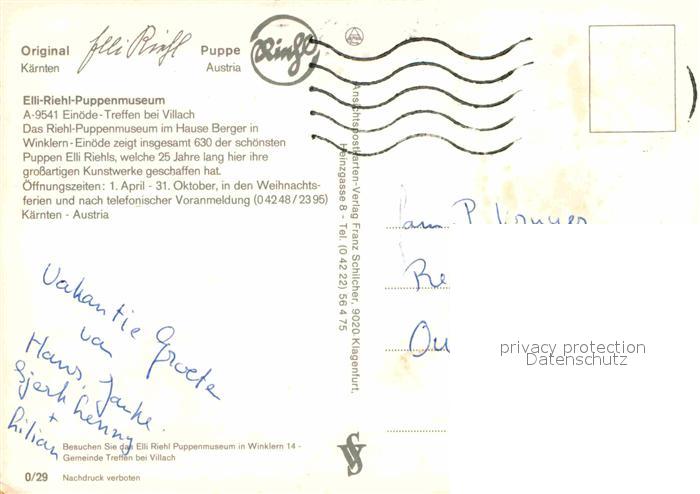 Original Elli Riehl Puppe
Kärnten Austria
Riehl
Elli-Riehl-Puppenmuseum
A-9541 Einöde-Treffen bei Villach
Das Riehl-Puppenmuseum im Hause Berger in
Winklern-Einöde zeigt insgesamt 630 der schönsten
Puppen Elli Riehls, welche 25 Jahre lang hier ihre
großartigen Kunstwerke geschaffen hat.
Öffnungszeiten: 1. April - 31. Oktober, in den Weihnachts-
ferien und nach telefonischer Voranmeldung (04248/2395)
Kärnten - Austria
Vakantie Groeten
van
Hans, Janke
Sjerk Lenny
+
Lilian
Besuchen Sie das Elli Riehl Puppenmuseum in Winklern 14 -
Gemeinde Treffen bei Villach
0/29 Nachdruck verboten
Ansichtspostkarten-Verlag Franz Schilcher, 9020 Klagenfurt,
Heinzgasse 8 - Tel. (0 42 22) 56 4 75
Fam P
Re
Ou
privacy protection
Datenschutz